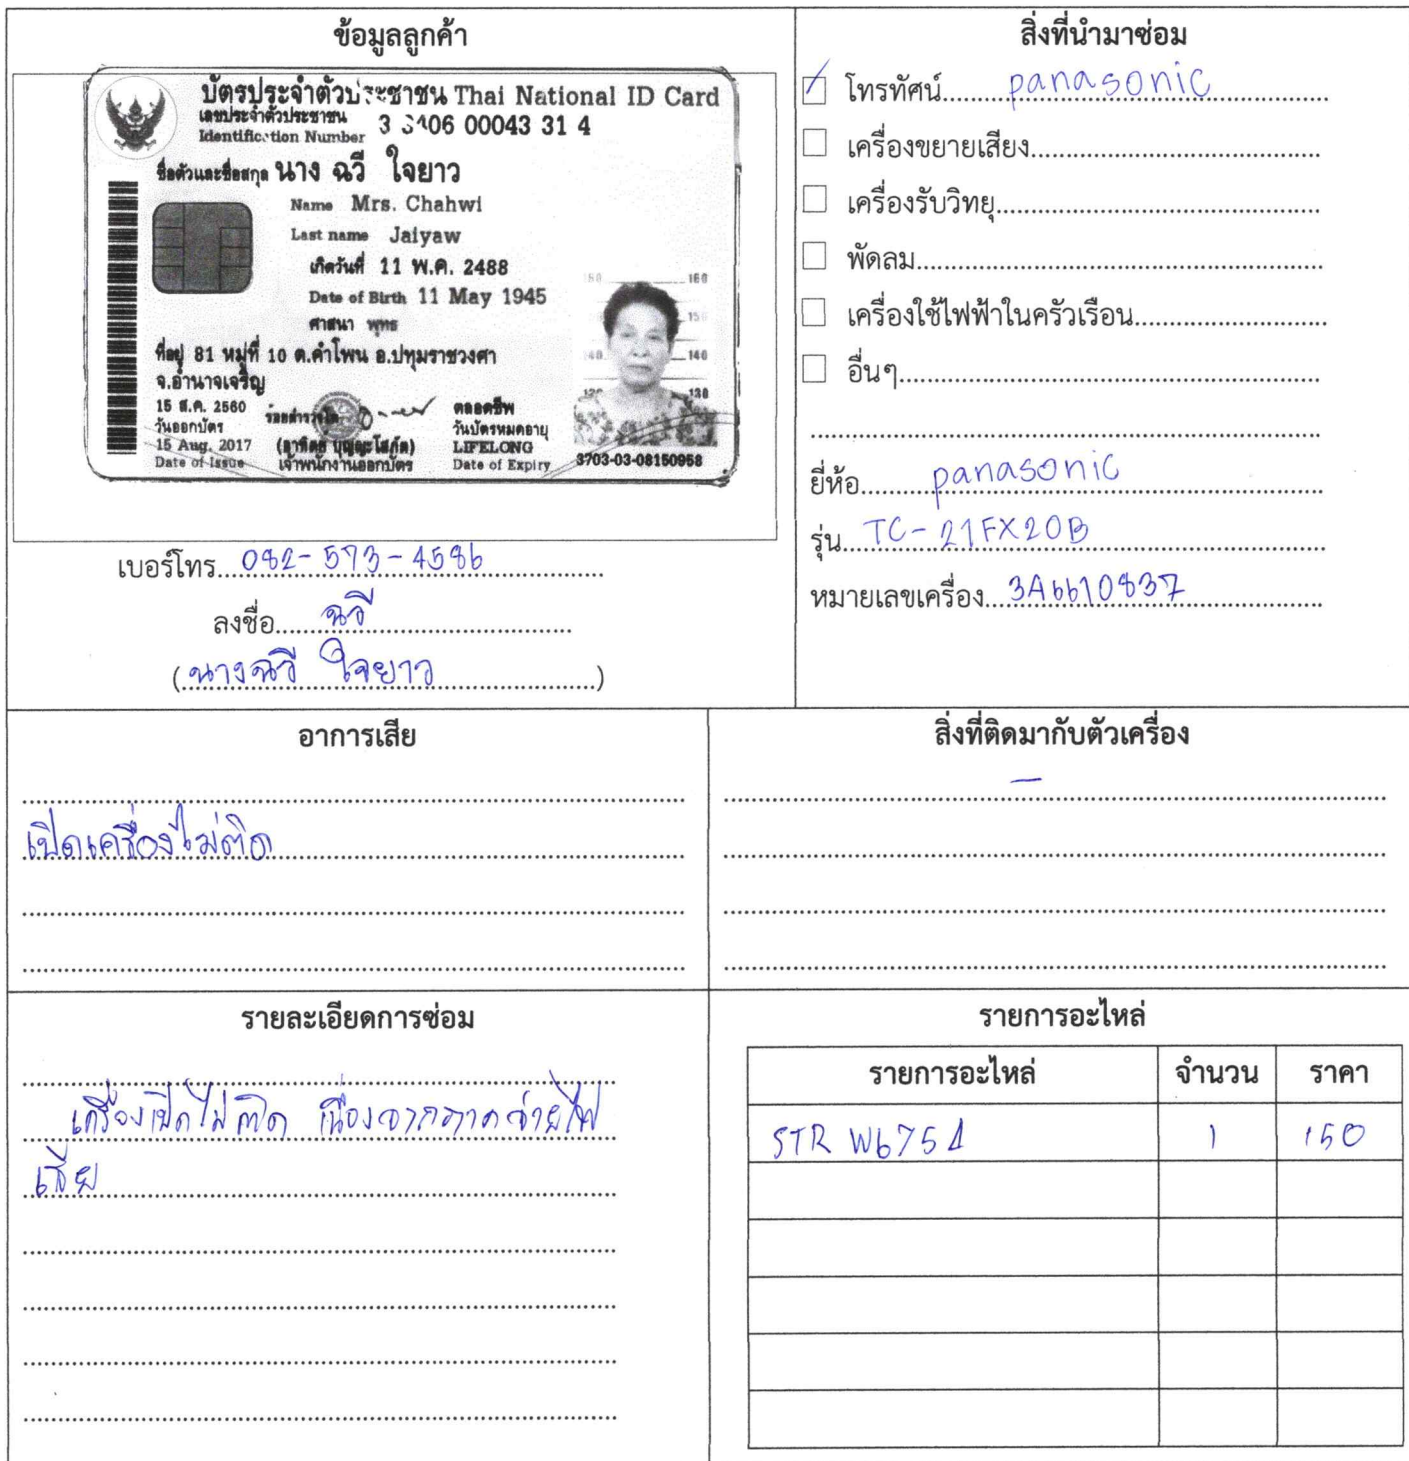 ข้อมูลลูกค้า
บัตรประจำตัวประชาชน Thai National ID Card
เลขประจำตัวประชาชน
Identification Number
00043 31 4
ชื่อตัวและชื่อสกุล นาง ฉวี ใจยาว
Name Mrs. Chahwi
Last name Jaiyaw
เกิดวันที่ 11 พ.ค. 2488
Date of Birth 11 May 1945
ศาสนา พุทธ
ที่อยู่ 81 หมู่ที่ 10 ต.คำโพน อ.ปทุมราชวงศา
จ.อำนาจเจริญ
15 ส.ค. 2560
วันออกบัตร
15 Aug. 2017
Date of Issue
เจ้าพนักงานออกบัตร
ตลอดชีพ
วันบัตรหมดอายุ
LIFELONG
Date of Expiry
160
140
3703-03-08150958
เบอร์โทร 082-573-4586
ลงชื่อ ฉวี
(นางฉวี ใจยาว)
สิ่งที่นำมาซ่อม
โทรทัศน์ panasonic
เครื่องขยายเสียง
เครื่องรับวิทยุ
พัดลม
เครื่องใช้ไฟฟ้าในครัวเรือน
อื่นๆ
ยี่ห้อ panasonic
รุ่น TC-21FX20B
หมายเลขเครื่อง 3A6610837
อาการเสีย
เปิดเครื่องไม่ติด
สิ่งที่ติดมากับตัวเครื่อง
-
รายละเอียดการซ่อม
เครื่องเปิดไม่ติด เนื่องจากภาคจ่ายไฟ
เสีย
รายการอะไหล่
รายการอะไหล่ จำนวน ราคา
STR W6754 1 150